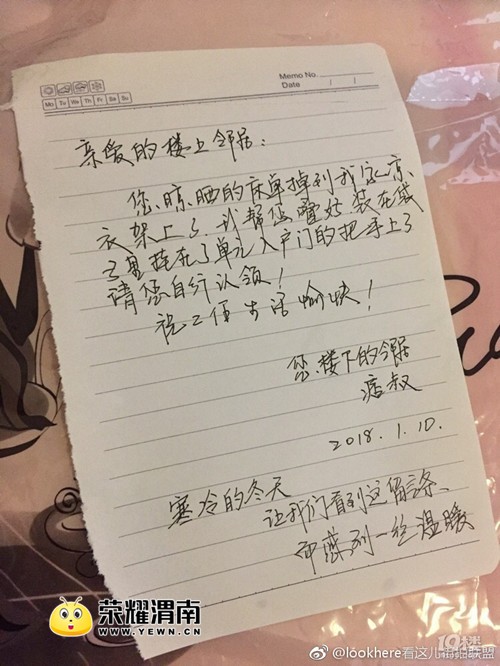 Memo No.
Date / /
Mo Tu We Th Fr Sa Su
亲爱的楼上邻居：
您晾晒的床单掉到我家凉
衣架上了，我帮您叠好装在袋
子里挂在了单元入户门的把手上了
请您自行认领！
祝工作生活愉快！
您楼下的邻居
店叔
2018.1.10.
寒冷的冬天
让我们看到这留言条、
却感到一丝温暖
荣耀渭南
WWW.YEWN.CN
@lookhere看这儿
联盟